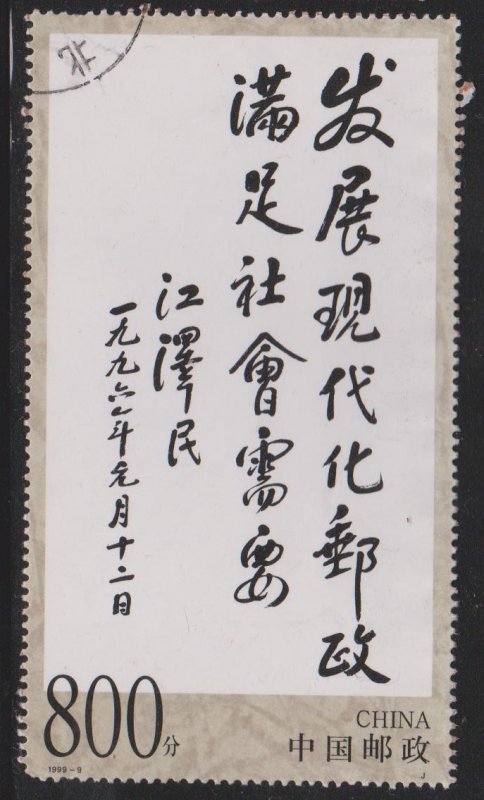 北
发展現代化郵政
满足社會需要
江澤民
一九九六年元月十二日
800分
CHINA
中国邮政
1999-9
J